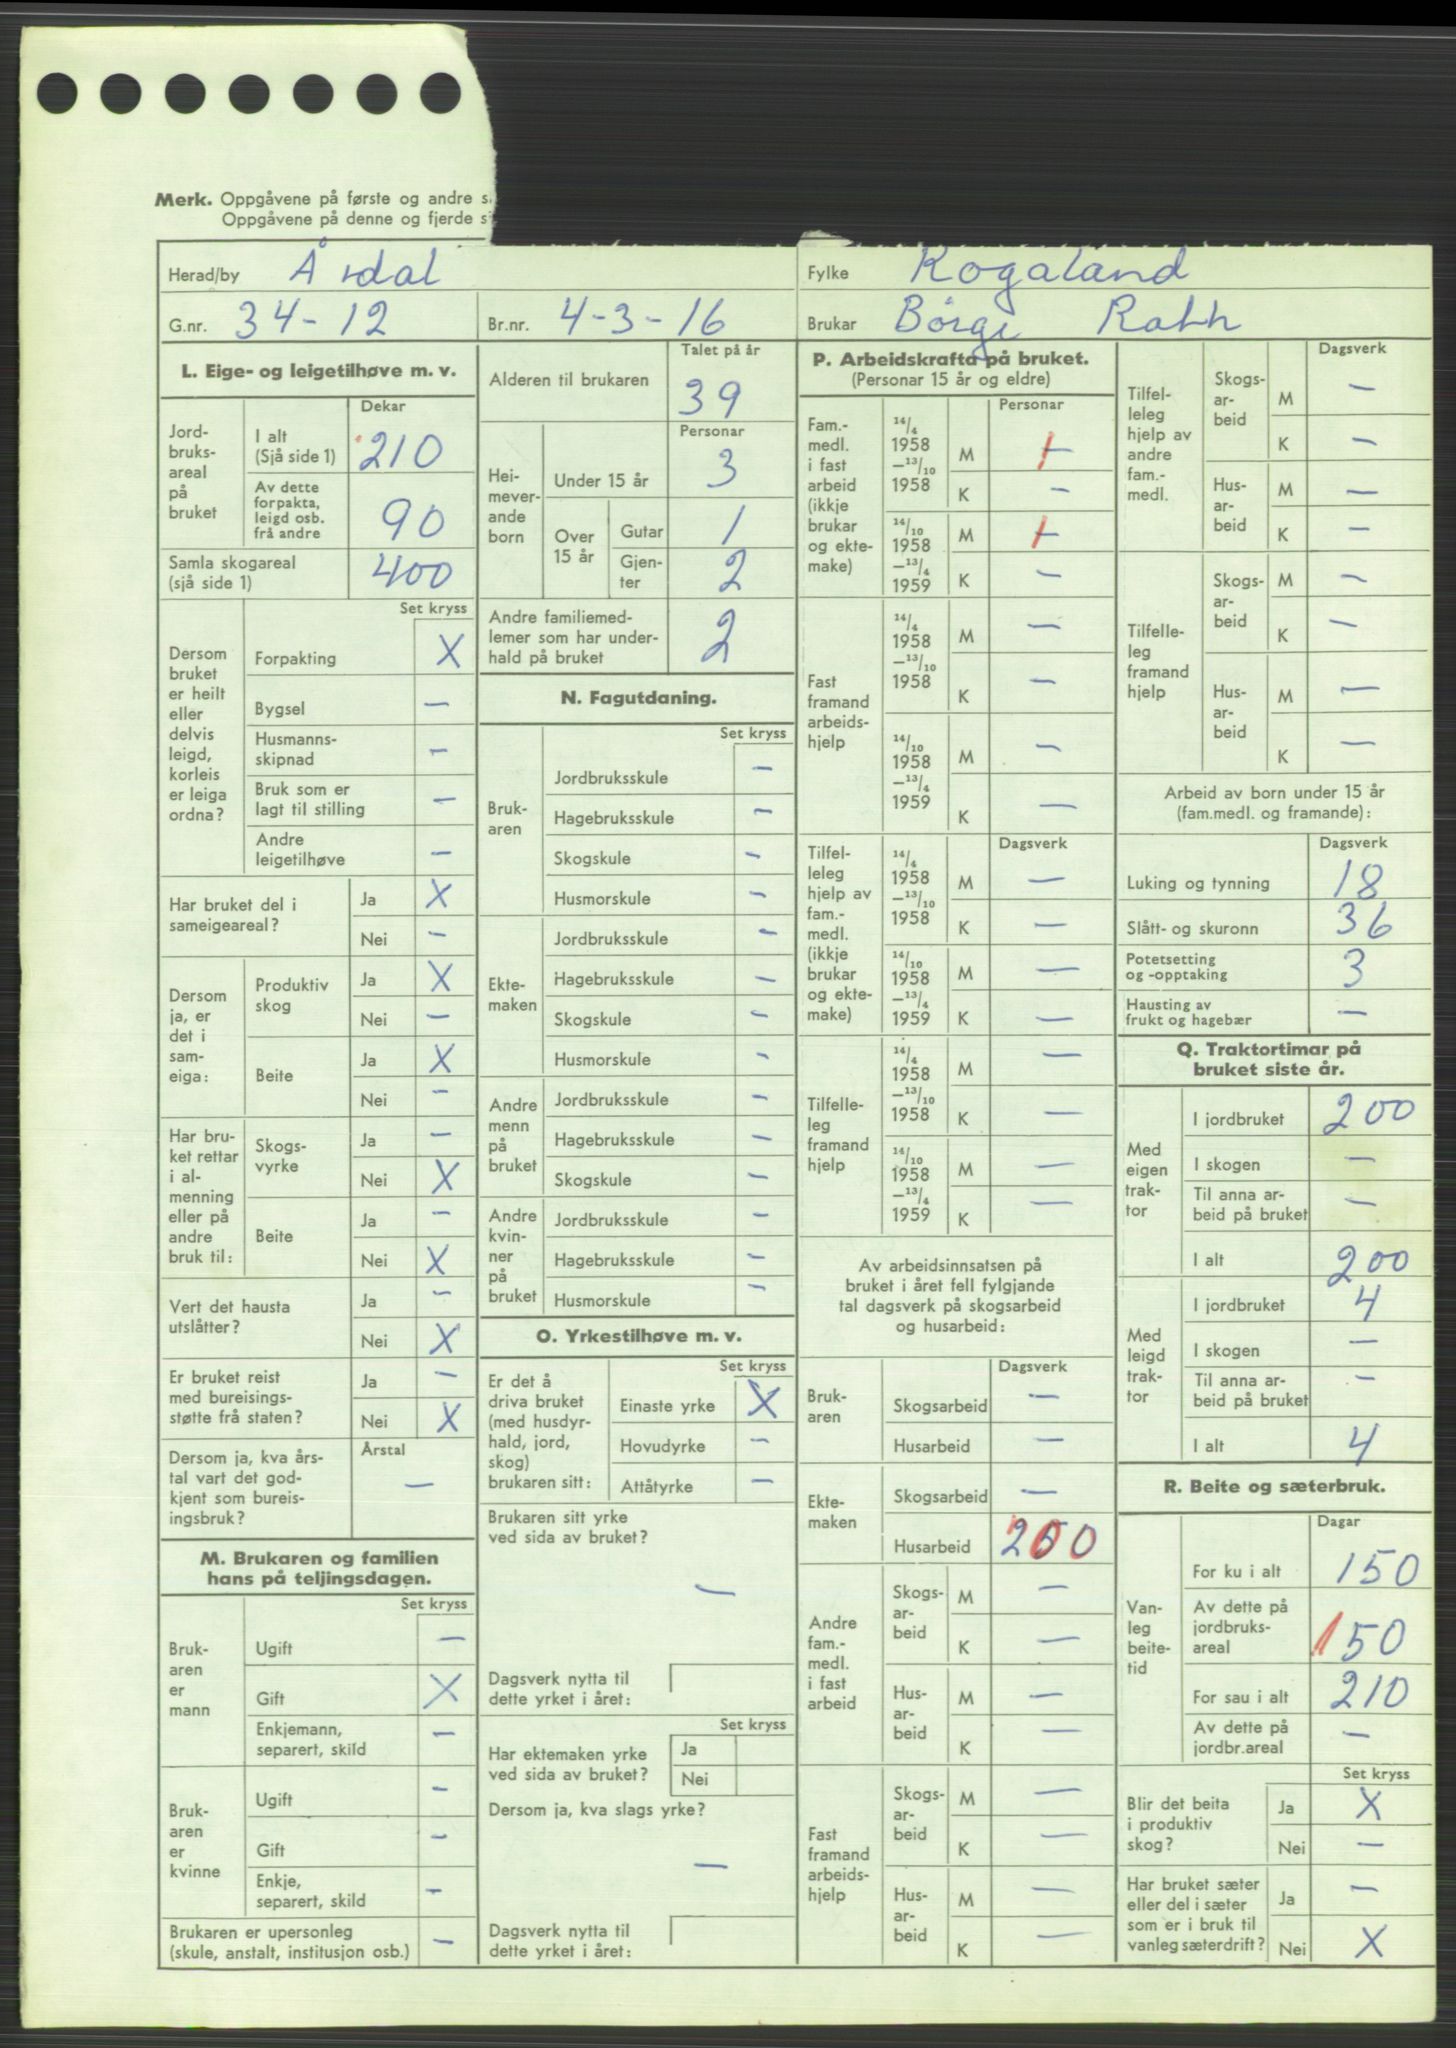 Merk. Oppgåvene på første og andre s
Oppgåvene på denne og fjerde s
Herad/by Årdal
Fylke Rogaland
G.nr. 34-12
Br.nr. 4-3-16
Brukar Børge Rath
L. Eige- og leigetilhøve m. v.
Dekar
Jord-
bruks-
areal
på
bruket
I alt
(Sjå side 1) 210
Av dette
forpakta,
leigd osb.
frå andre 90
Samla skogareal
(sjå side 1) 400
Set kryss
Dersom
bruket
er heilt
eller
delvis
leigd,
korleis
er leiga
ordna?
Forpakting X
Bygsel —
Husmanns-
skipnad —
Bruk som er
lagt til stilling —
Andre
leigetilhøve —
Har bruket del i
sameigeareal?
Ja X
Nei —
Dersom
ja, er
det i
sam-
eiga:
Produktiv
skog
Ja X
Nei —
Beite
Ja X
Nei —
Har bru-
ket rettar
i al-
menning
eller på
andre
bruk til:
Skogs-
vyrke
Ja —
Nei X
Beite
Ja —
Nei X
Vert det hausta
utslåtter?
Ja —
Nei X
Er bruket reist
med bureisings-
støtte frå staten?
Ja —
Nei X
Dersom ja, kva års-
tal vart det god-
kjent som bureis-
ingsbruk?
Årstal
—
M. Brukaren og familien
hans på teljingsdagen.
Set kryss
Bruk-
aren
er
mann
Ugift —
Gift X
Enkjemann,
separert, skild —
Bruk-
aren
er
kvinne
Ugift —
Gift —
Enkje,
separert, skild —
Brukaren er upersonleg
(skule, anstalt, institusjon osb.) —
Talet på år
Alderen til brukaren 39
Personar
Hei-
mever-
ande
born
Under 15 år 3
Over
15 år
Gutar 1
Gjen-
ter 2
Andre familiemed-
lemer som har under-
hald på bruket 2
N. Fagutdaning.
Set kryss
Bruk-
aren
Jordbruksskule —
Hagebruksskule —
Skogskule —
Husmorskule —
Ekte-
maken
Jordbruksskule —
Hagebruksskule —
Skogskule —
Husmorskule —
Andre
menn
på
bruket
Jordbruksskule —
Hagebruksskule —
Skogskule —
Andre
kvin-
ner
på
bruket
Jordbruksskule —
Hagebruksskule —
Husmorskule —
O. Yrkestilhøve m. v.
Set kryss
Er det å
driva bruket
(med husdyr-
hald, jord,
skog)
brukaren sitt:
Einaste yrke X
Hovudyrke —
Attåtyrke —
Brukaren sitt yrke
ved sida av bruket?
—
Dagsverk nytta til
dette yrket i året:
Set kryss
Har ektemaken yrke
ved sida av bruket?
Ja
Nei
Dersom ja, kva slags yrke?
—
Dagsverk nytta til
dette yrket i året:
P. Arbeidskrafta på bruket.
(Personar 15 år og eldre)
Personar
Fam.-
medl.
i fast
arbeid
(ikkje
brukar
og ekte-
make)
14/4
1958
—13/10
1958
M 1
K —
14/10
1958
—13/4
1959
M 1
K —
Fast
framand
arbeids-
hjelp
14/4
1958
—13/10
1958
M —
K —
14/10
1958
—13/4
1959
M —
K —
Dagsverk
Tilfel-
leleg
hjelp av
fam.-
medl.
(ikkje
brukar
og ekte-
make)
14/4
1958
—13/10
1958
M —
K —
14/10
1958
—13/4
1959
M —
K —
Tilfelle-
leg
framand
hjelp
14/4
1958
—13/10
1958
M —
K —
14/10
1958
—13/4
1959
M —
K —
Av arbeidsinnsatsen på
bruket i året fell fylgjande
tal dagsverk på skogsarbeid
og husarbeid:
Dagsverk
Bruk-
aren
Skogsarbeid —
Husarbeid —
Ekte-
maken
Skogsarbeid —
Husarbeid 200
Andre
fam.-
medl.
i fast
arbeid
Skogs-
ar-
beid
M —
K —
Hus-
ar-
beid
M —
K —
Fast
framand
arbeids-
hjelp
Skogs-
ar-
beid
M —
K —
Hus-
ar-
beid
M —
K —
Dagsverk
Tilfel-
leleg
hjelp av
andre
fam.-
medl.
Skogs-
ar-
beid
M —
K —
Hus-
ar-
beid
M —
K —
Tilfelle-
leg
framand
hjelp
Skogs-
ar-
beid
M —
K —
Hus-
ar-
beid
M —
K —
Arbeid av born under 15 år
(fam.medl. og framande):
Dagsverk
Luking og tynning 18
Slått- og skuronn 36
Potetsetting
og -opptaking 3
Hausting av
frukt og hagebær —
Q. Traktortimar på
bruket siste år.
Med
eigen
trak-
tor
I jordbruket 200
I skogen —
Til anna ar-
beid på bruket —
I alt 200
Med
leigd
trak-
tor
I jordbruket 4
I skogen —
Til anna ar-
beid på bruket —
I alt 4
R. Beite og sæterbruk.
Dagar
Van-
leg
beite-
tid
For ku i alt 150
Av dette på
jordbruks-
areal 150
For sau i alt 210
Av dette på
jordbr.areal —
Set kryss
Blir det beita
i produktiv
skog?
Ja X
Nei —
Har bruket sæter
eller del i sæter
som er i bruk til
vanleg sæterdrift?
Ja —
Nei X